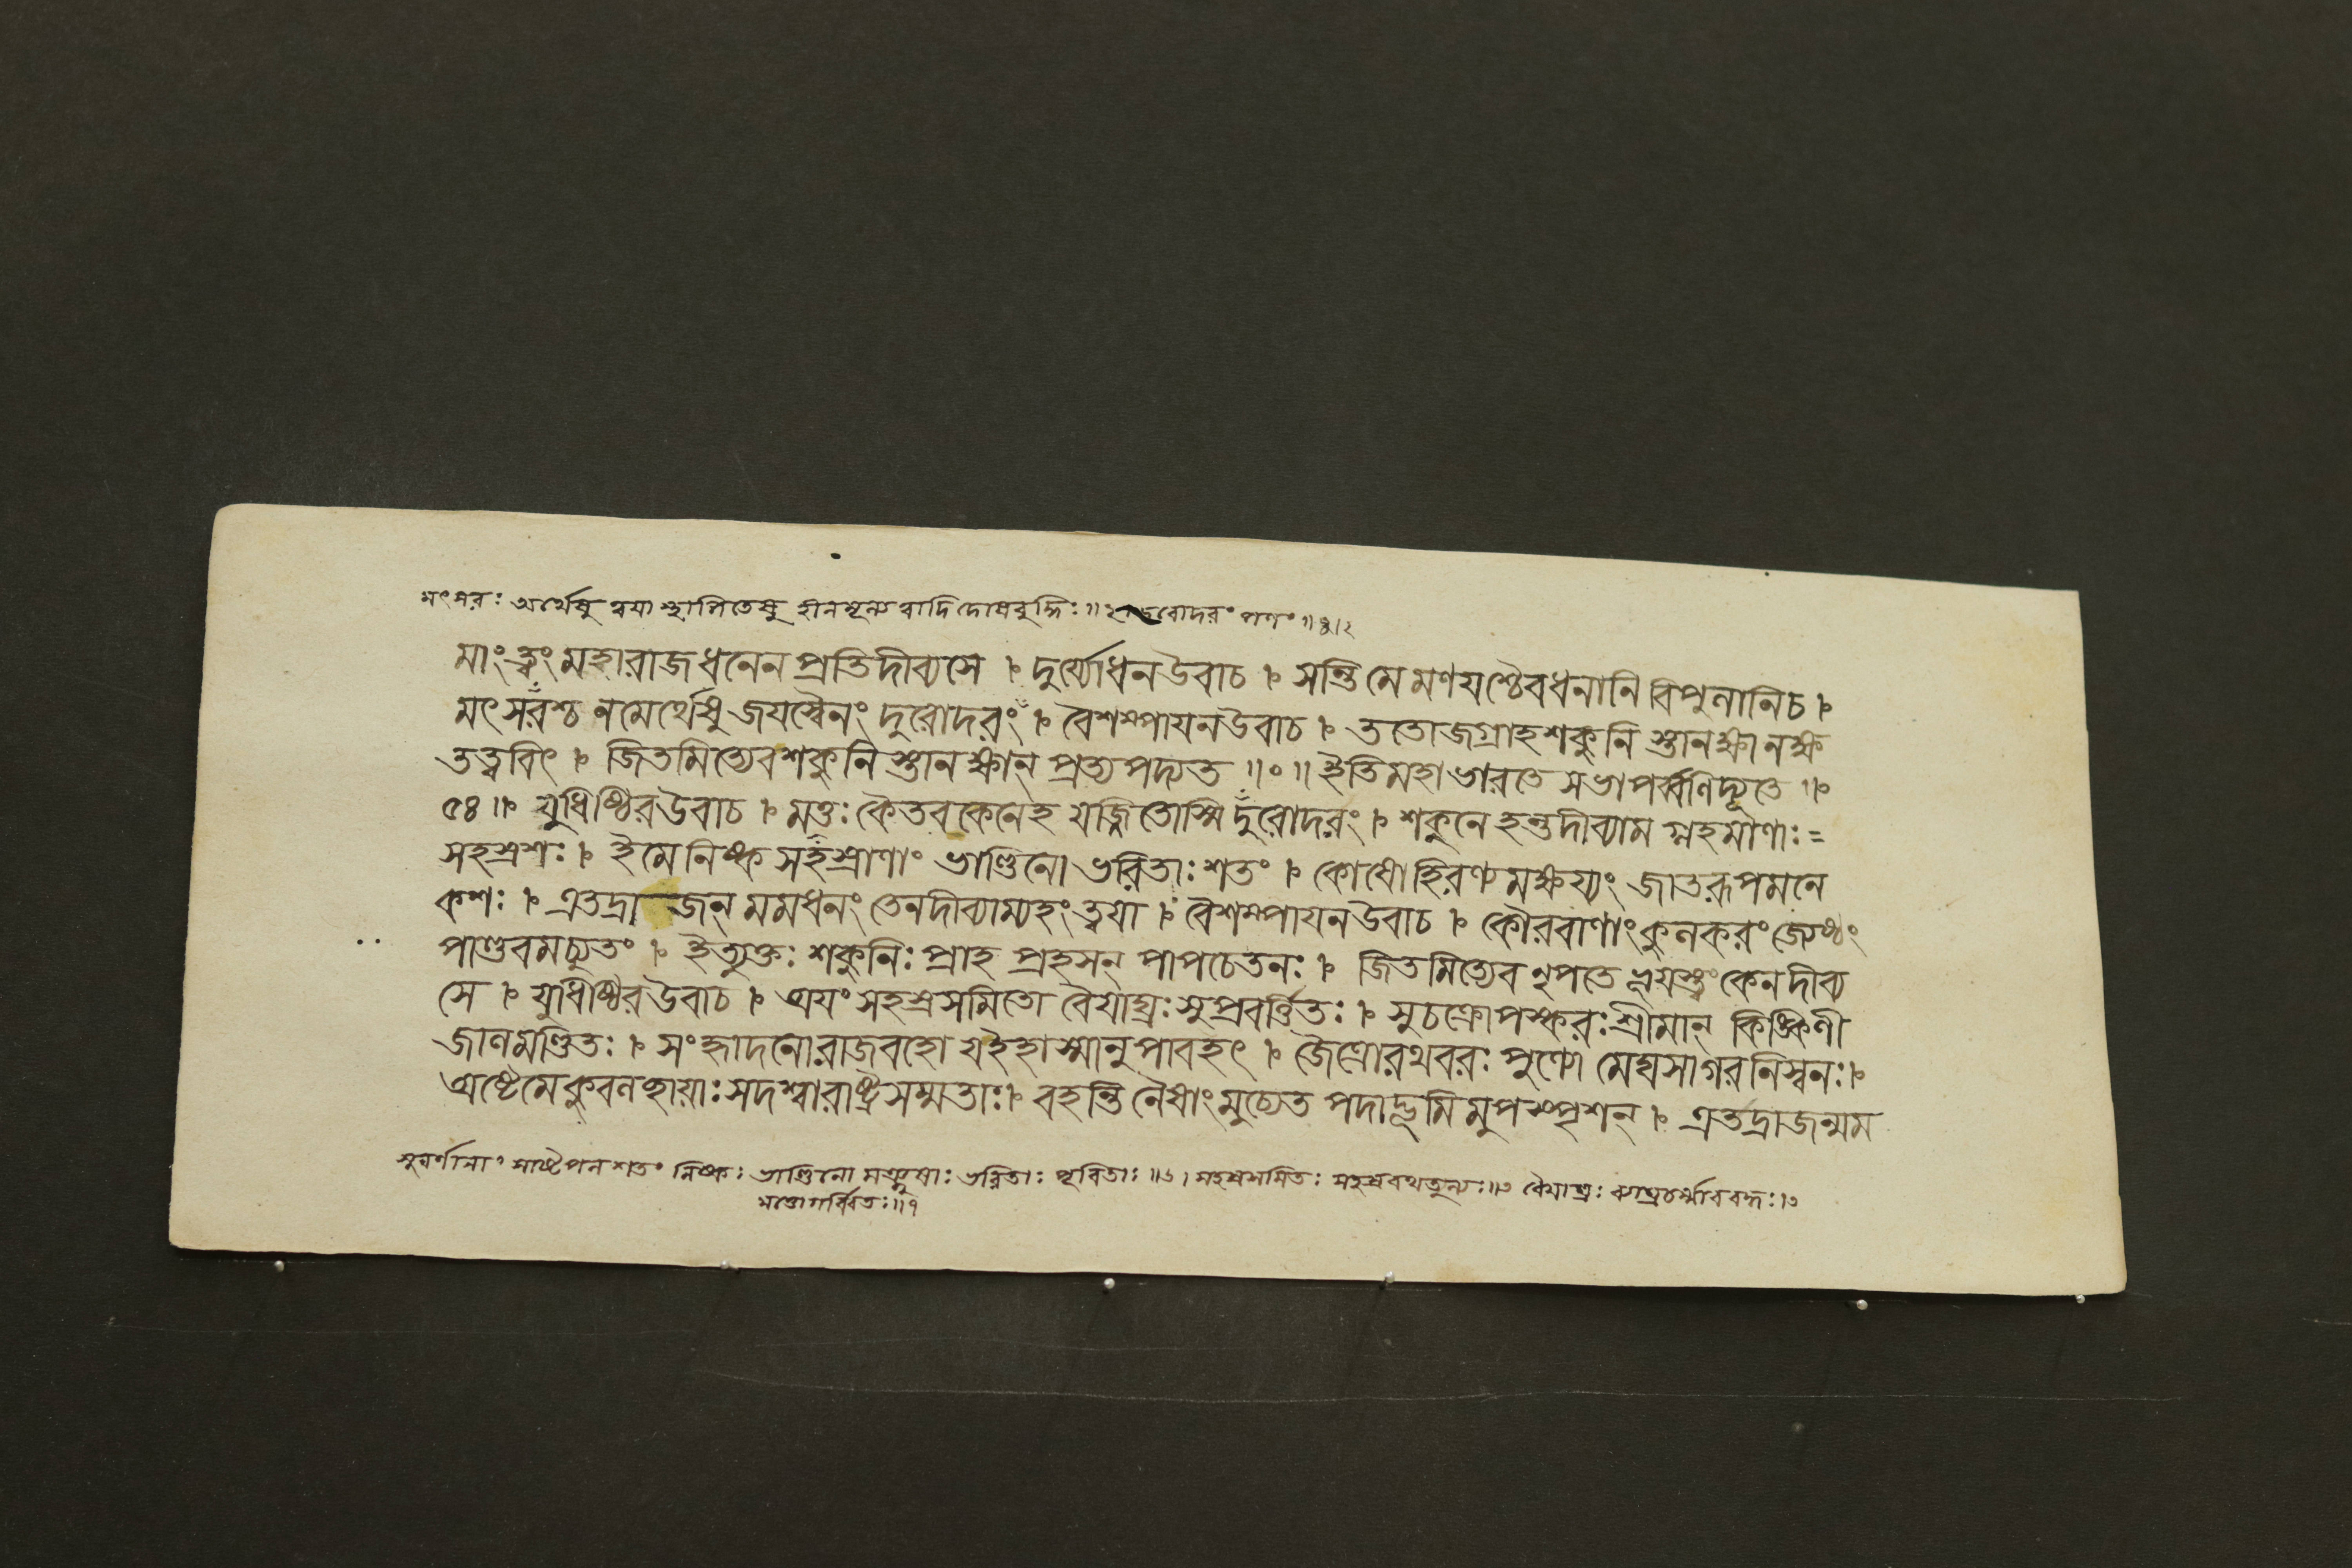 মৎসরঃ অর্থেষু ত্বয়া স্থাপিতেষু হীনমূল্যত্বাদি দোষবুদ্ধিঃ॥২ দুরোদরং পণং॥৪।২
মাংত্ত্বংমহারাজধনেন প্রতিদীব্যসে । দুর্য্যোধনউবাচ । সন্তিমেমণযশ্চৈবধনানি বিপুলানিচ ।
মৎসরশ্চ নমের্থেষু জযস্বৈনং দুরোদরং । বৈশম্পাযনউবাচ । ততোজগ্রাহশকুনি স্তানক্ষানক্ষ
তত্ত্ববিৎ । জিতমিত্যেবশকুনি স্তানক্ষান্ প্রত্যপদ্যত ॥০॥ ইতিমহাভারতে সভাপর্ব্বণিদ্যূতে ॥
৫৪॥ যুধিষ্ঠিরউবাচ । মত্তঃ কৈতবকেনেহ যজ্জিতোস্মি দুরোদরং । শকুনে হন্তদীব্যাম গ্লহমাণাঃ=
সহস্রশঃ । ইমে নিষ্ক সহস্রাণাং ভাণ্ডিনো ভরিতাঃ শতং । কোষোহিরণ্যমক্ষয্যং জাতরূপমনে
কশঃ । এতদ্রাজন্ মমধনং তেনদীব্যাম্যহং ত্বযা । বৈশম্পাযনউবাচ । কৌরবাণাংকুলকরংজ্যেষ্ঠং
পাণ্ডবমচ্যুতং । ইত্যুক্তঃ শকুনিঃ প্রাহ প্রহসন্ পাপচেতনঃ । জিতমিত্যেব নৃপতে কেনদীব্য
সে । যুধিষ্ঠিরউবাচ । অযং সহস্রসমিতো বৈযাঘ্রঃসুপ্রবর্ত্তিতঃ । সুচক্রোপস্করঃশ্রীমান্ কিঙ্কিণী
জালমণ্ডিতঃ । সংহ্লাদনোরাজবহো যইহাস্মানুপাবহৎ । জৈত্রোরথবরঃ পুণ্যো মেঘসাগরনিস্বনঃ।
অষ্টৌমেকুবলচ্ছাযাঃসদশ্বারাষ্ট্রসম্মতাঃ। বহন্তি নৈষাংমুচ্যেত পদাদ্ভূমিমুপস্পৃশন্ । এতদ্রাজন্মম
সুবর্ণানাং সাষ্টৈপলশতং নিষ্কঃ ভাণ্ডিনো মঞ্জুষাঃ ভরিতাঃ পূরিতাঃ॥৬। সহস্রসমিতঃ সহস্ররথতুল্যঃ॥৩ বৈযাঘ্রঃ ব্যাঘ্রচর্ম্মাববদ্ধঃ।৩
মত্তোগর্ব্বিতঃ॥১